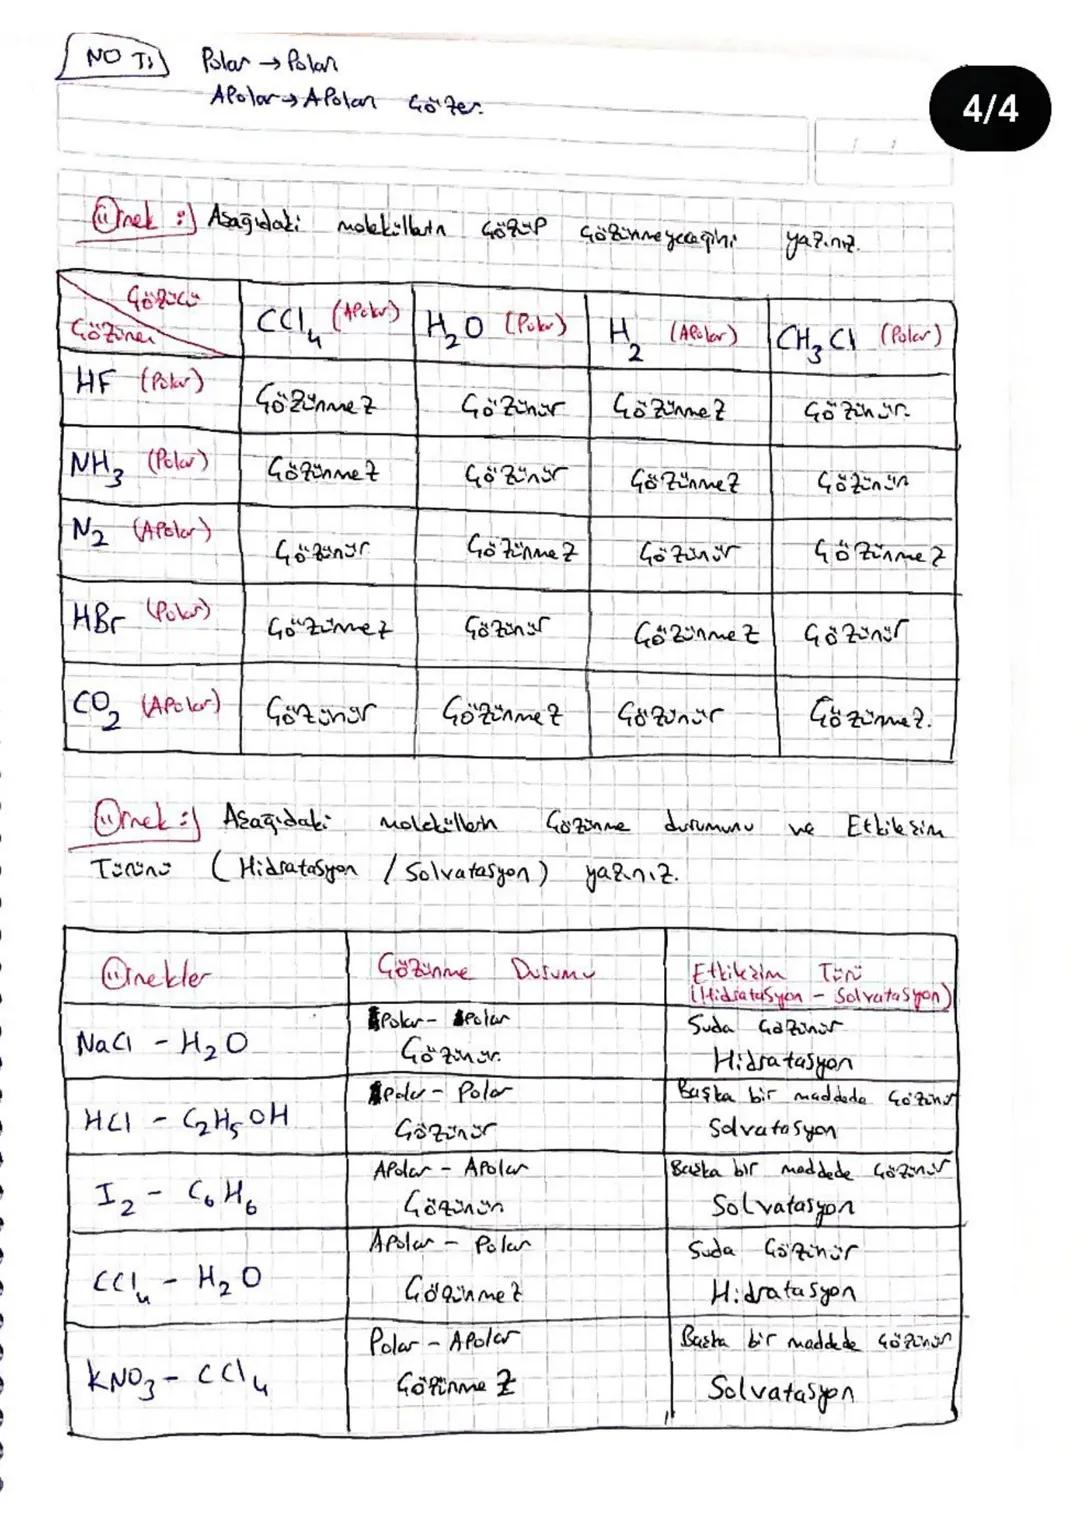 NOT:
Polar → Polar
Apolar → Apolar Çözer.
4/4
Örnek :) Aşağıdaki moleküllerin Çözüp Çözünmeyeceğini yazınız.
Çözücü
Çözünen
CCl4 (Apolar)
H2O (Polar)
H2 (Apolar)
CH3Cl (Polar)
HF (Polar)
Çözünmez
Çözünür
Çözünmez
Çözünür.
NH3 (Polar)
Çözünmez
Çözünür
Çözünmez
Çözünür
N2 (Apolar)
Çözünür
Çözünmez
Çözünür
Çözünmez
HBr (Polar)
Çözünmez
Çözünür
Çözünmez
Çözünür
CO2 (Apolar)
Çözünür
Çözünmez
Çözünür
Çözünmez.
Örnek :) Aşağıdaki moleküllerin Çözünme durumunu ve Etkileşim
Türünü (Hidratasyon / Solvatasyon) yazınız.
Örnekler
Çözünme Durumu
Etkileşim Türü
(Hidratasyon - Solvatasyon)
NaCl - H2O
Polar - Polar
Çözünür.
Suda Çözünür
Hidratasyon
HCl - C2H5OH
Polar - Polar
Çözünür
Başka bir maddede Çözünür
Solvatasyon
I2 - C6H6
Apolar - Apolar
Çözünür
Başka bir maddede Çözünür
Solvatasyon
CCl4 - H2O
Apolar - Polar
Çözünmez
Suda Çözünür
Hidratasyon
KNO3 - CCl4
Polar - Apolar
Çözünmez
Başka bir maddede Çözünür
Solvatasyon